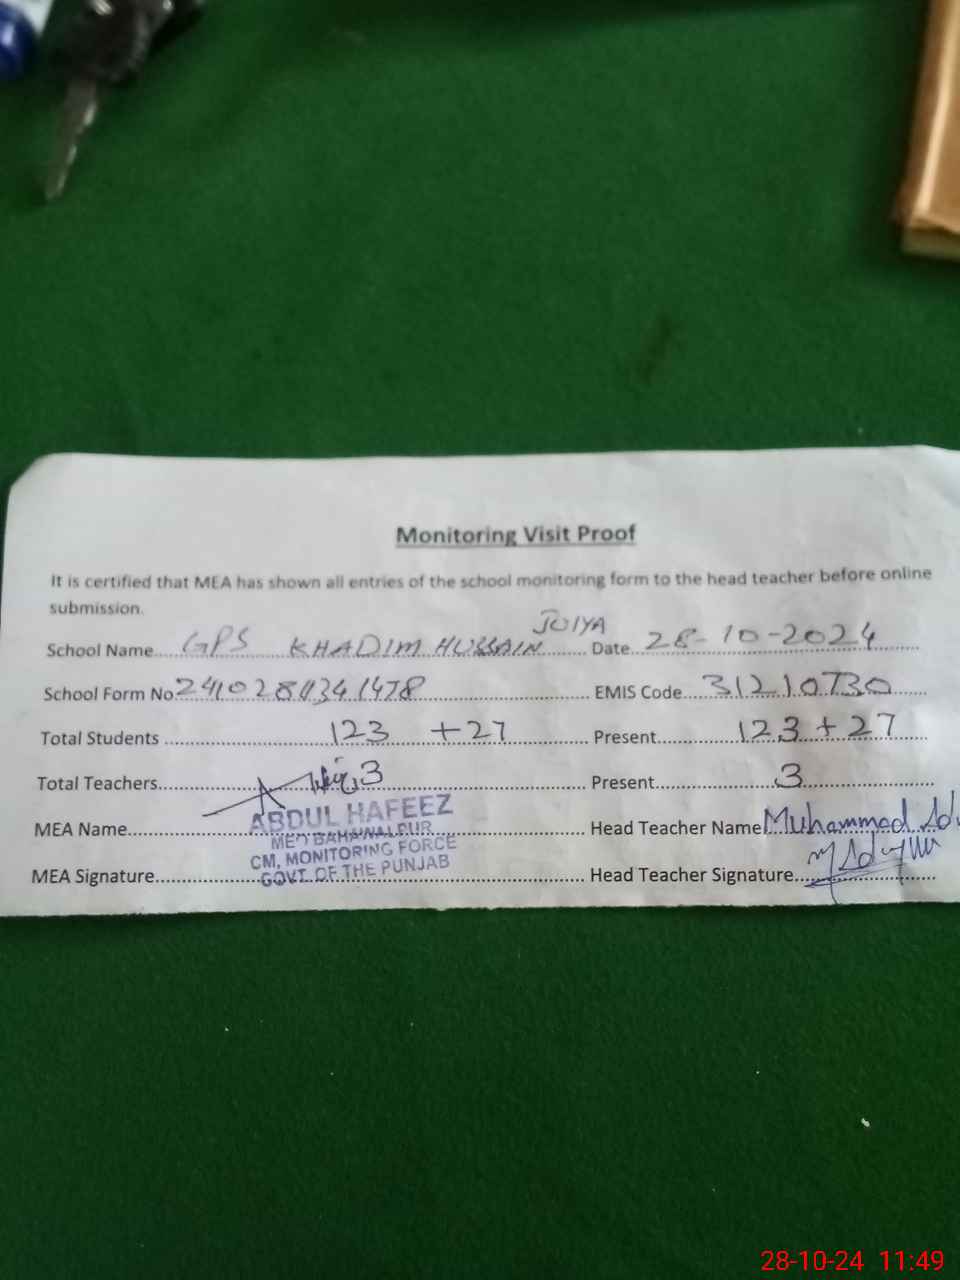 Monitoring Visit Proof
It is certified that MEA has shown all entries of the school monitoring form to the head teacher before online
submission.
School Name GPS KHADIM HUSSAIN JOIYA Date 28-10-2024
School Form No EMIS Code 31210730
Total Students 123 +27 Present 123 + 27
Total Teachers 3 Present 3
MEA Name ABDUL HAFEEZ Head Teacher Name Muhammad
MEO BAHAWALPUR
CM, MONITORING FORCE
MEA Signature GOVT. OF THE PUNJAB Head Teacher Signature
28-10-24 11:49